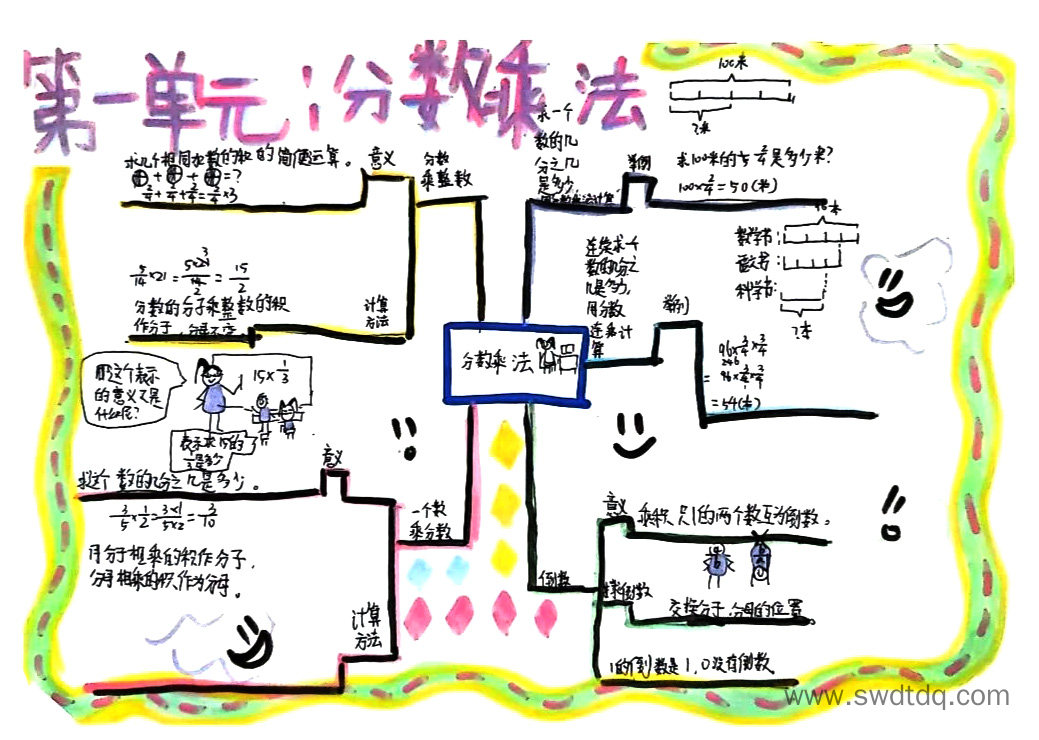 第一单元：分数乘法
求几个相同加数的和的简便运算。
意义
+ + =?
2/4+2/4+2/4=2/4×3
分数
乘整数
5/14×21=5×21/14=15/2
分数的分子乘整数的积
作分子，分母不变
计算
方法
求一个
数的几
分之几
是多少，
用分数乘法计算
举例
100米
?米
求100米的2/4是多少米?
100×2/4=50(米)
连续求一个
数的几分之
几是多少，
用分数
连乘计
算
举例
96本
数学书:
语文书:
科学书:
?本
96×3/4×3/4
=96×3/4×3/4
=54(本)
分数乘法
用这个表示
的意义又是
什么呢?
15×1/3
表示求15的
1/3是多少
求这个数的几分之几是多少。
意义
3/5×1/2=3×1/5×2=3/10
一个数
乘分数
用分子相乘的积作分子，
分母相乘的积作分母。
计算
方法
倒数
意义
乘积是1的两个数互为倒数。
求倒数
交换分子、分母的位置。
1的倒数是1,0没有倒数
www.swdtdq.com